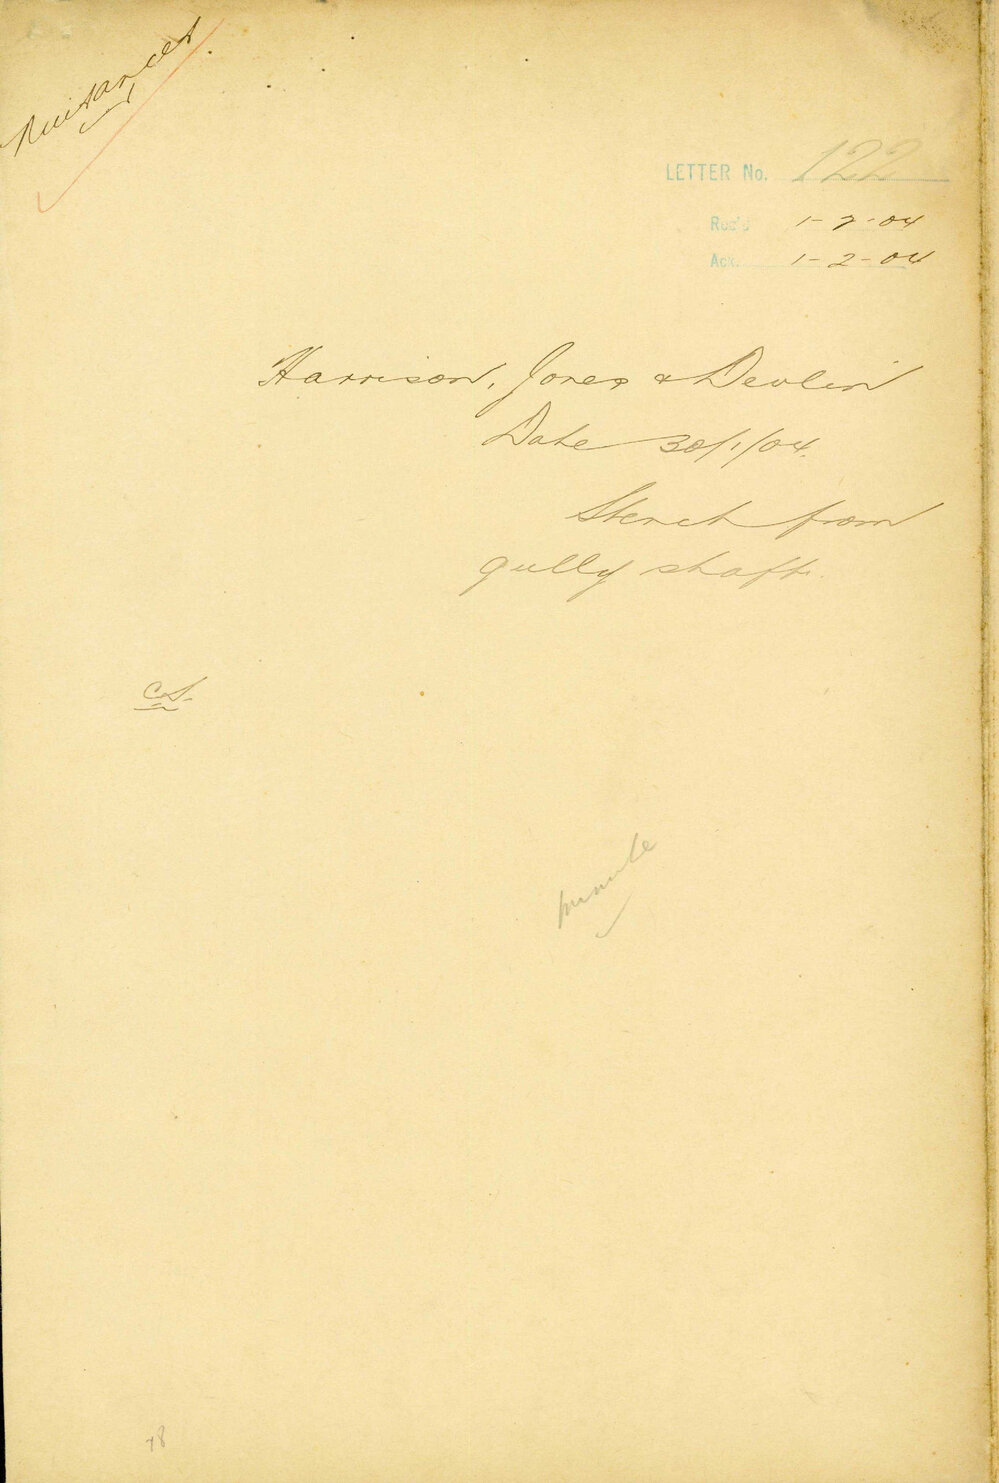 Nuisances
LETTER No. 122
Rec'd 1-2-04
Ack. 1-2-04
Harrison, Jones & Devlin
Date 30/1/04.
Stench from
gully shaft.
minute
78